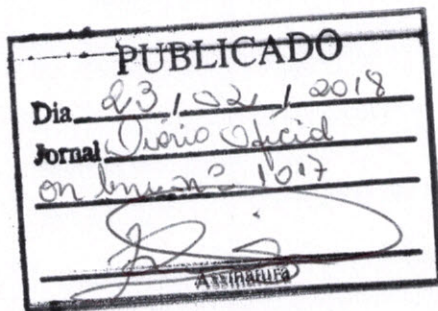 PUBLICADO
Dia 23 / 02 / 2018
Jornal Diário Oficial
on line nº 1017
Assinatura